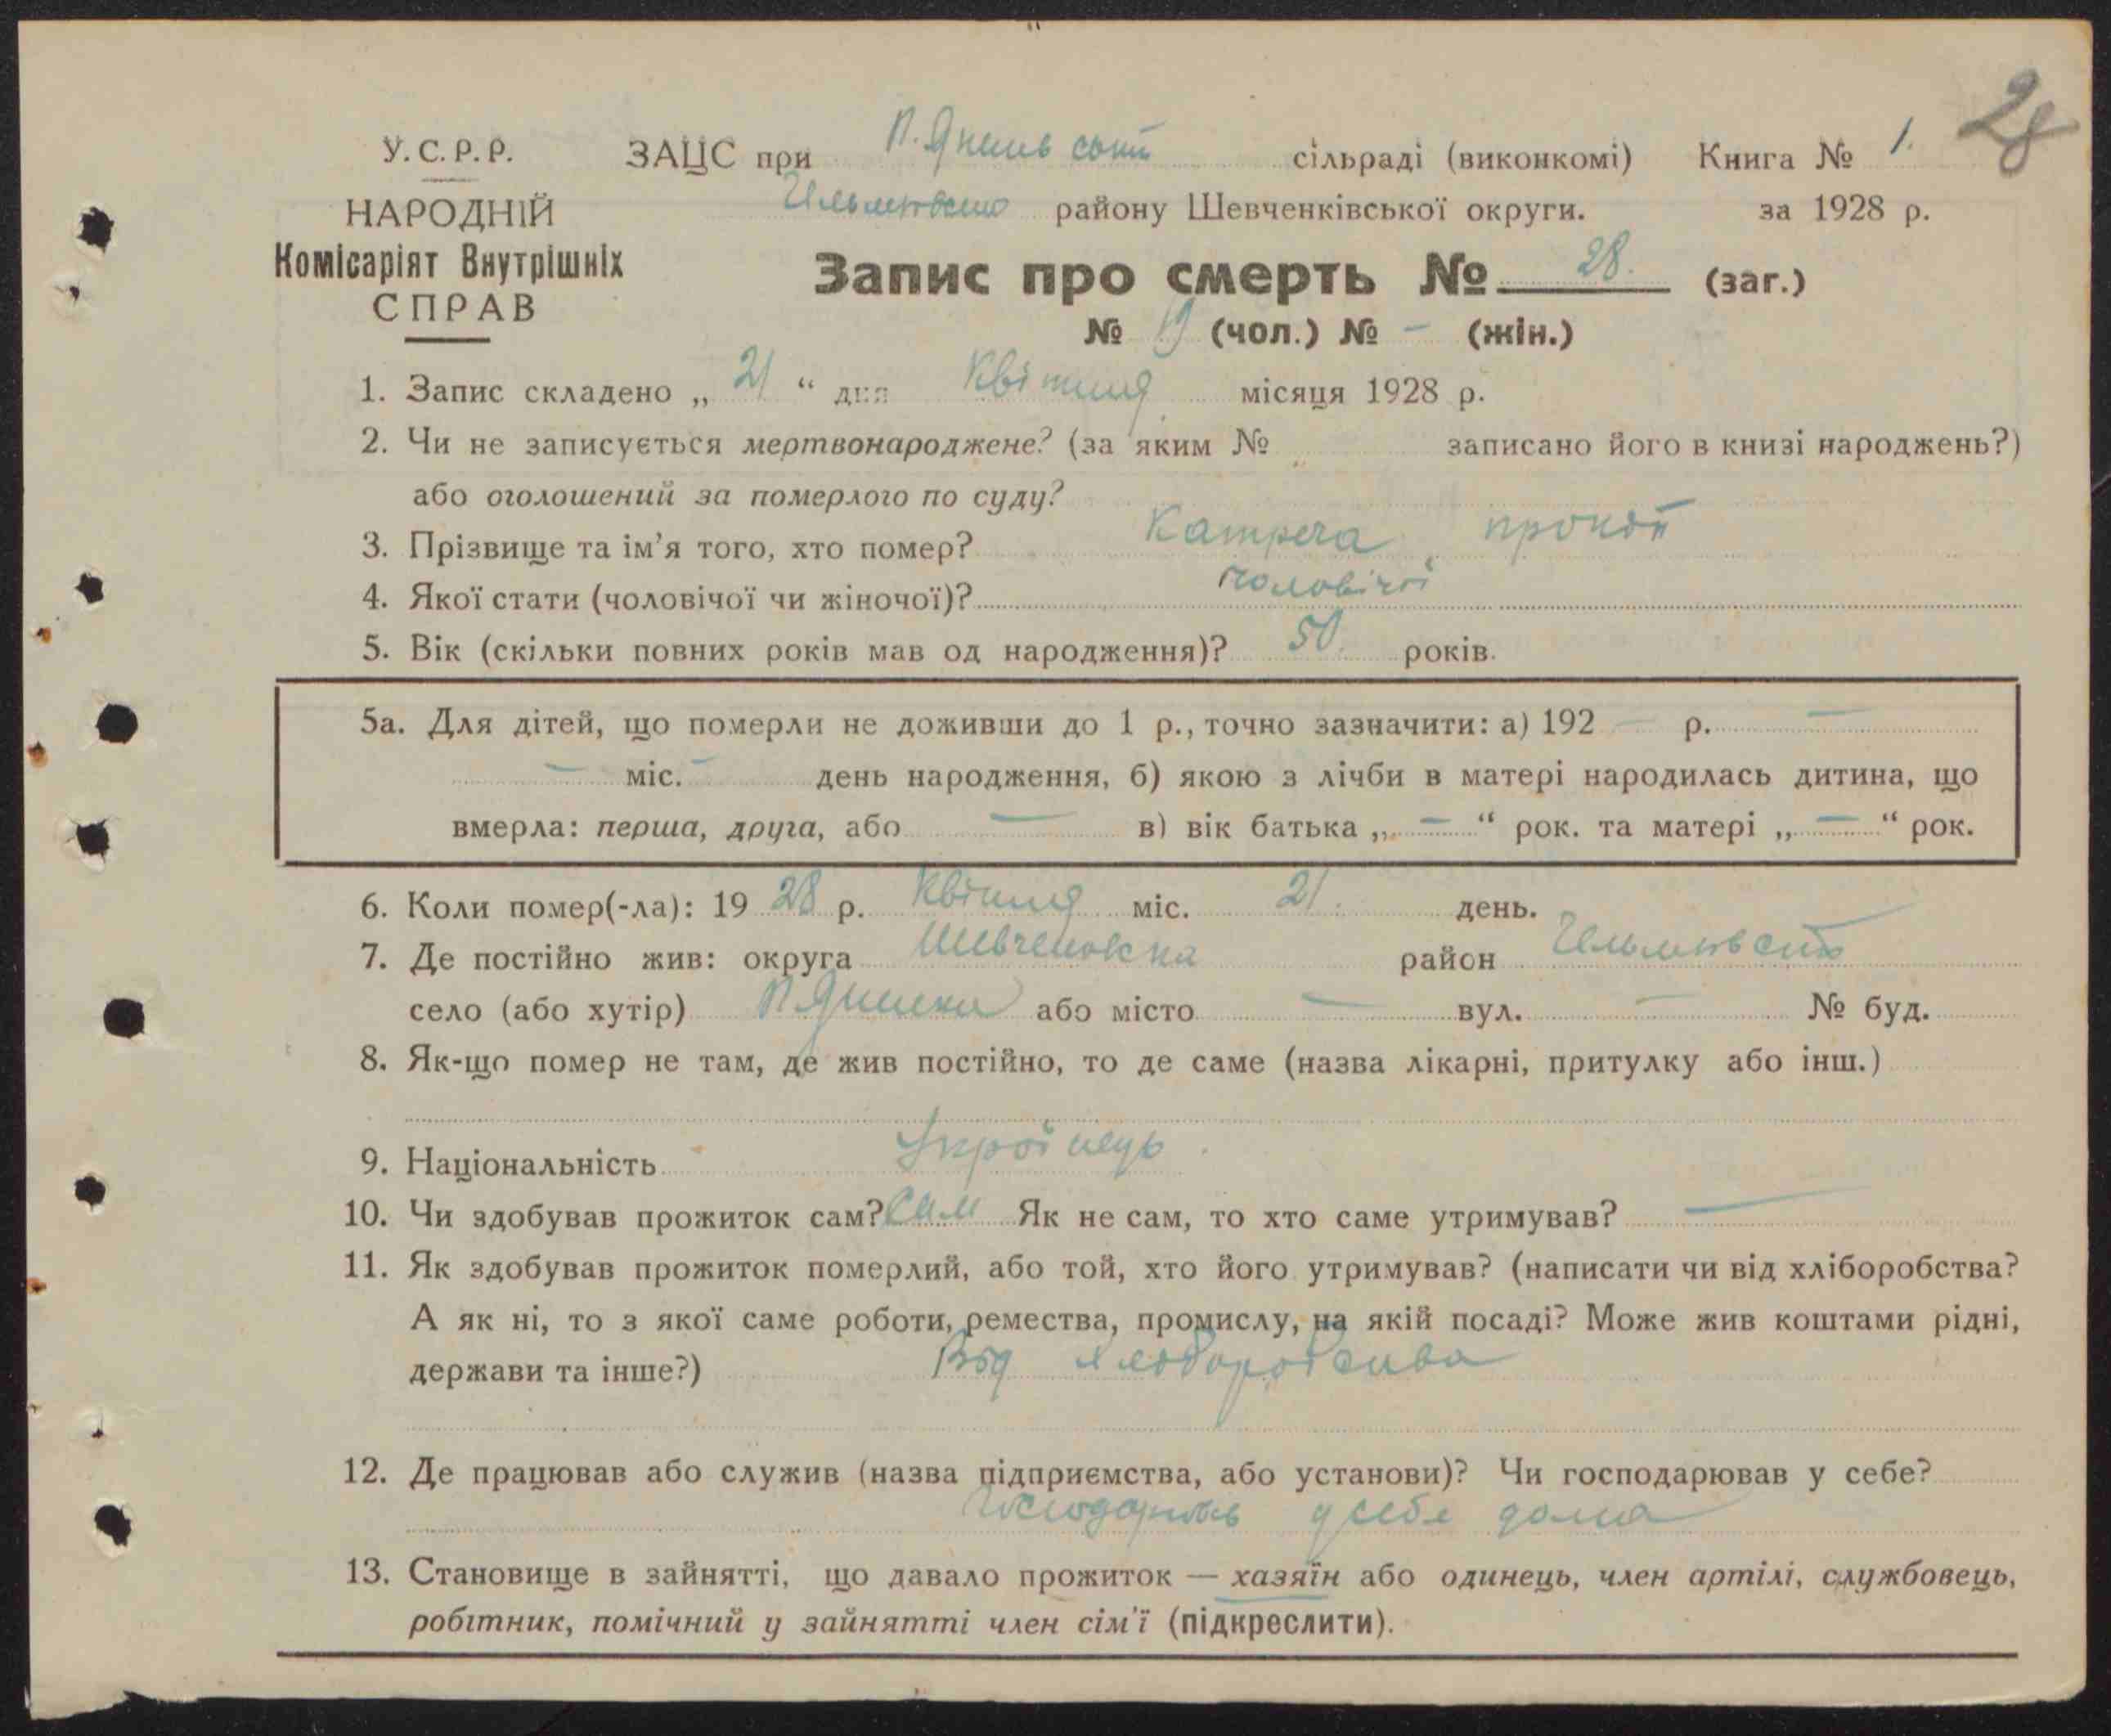 28
У.С.Р.Р. ЗАЦС при сільраді (виконкомі) Книга № 1.
НАРОДНІЙ району Шевченківської округи. за 1928 р.
Комісаріят Внутрішніх
СПРАВ
Запис про смерть № 28. (заг.)
№ 19 (чол.) № - (жін.)
1. Запис складено „ 21 “ дня Квітня місяця 1928 р.
2. Чи не записується мертвонароджене? (за яким № записано його в книзі народжень?)
або оголошений за померлого по суду?
3. Прізвище та ім’я того, хто помер?
4. Якої стати (чоловічої чи жіночої)? чоловічої
5. Вік (скільки повних років мав од народження)? 50. років.
5а. Для дітей, що померли не доживши до 1 р., точно зазначити: а) 192 — р. —
— міс. — день народження, б) якою з лічби в матері народилась дитина, що
вмерла: перша, друга, або — в) вік батька „ — “ рок. та матері „ — “ рок.
6. Коли помер(-ла): 19 28 р. Квітня міс. 21. день.
7. Де постійно жив: округа район
село (або хутір) або місто — вул. — № буд.
8. Як-що помер не там, де жив постійно, то де саме (назва лікарні, притулку або інш.)
9. Національність Українець
10. Чи здобував прожиток сам? Сам Як не сам, то хто саме утримував? —
11. Як здобував прожиток померлий, або той, хто його утримував? (написати чи від хліборобства?
А як ні, то з якої саме роботи, ремества, промислу, на якій посаді? Може жив коштами рідні,
держави та інше?) Від хлоборобства
12. Де працював або служив (назва підприємства, або установи)? Чи господарював у себе?
у себе дома
13. Становище в зайнятті, що давало прожиток — хазяїн або одинець, член артілі, службовець,
робітник, помічний у зайнятті член сім’ї (підкреслити).